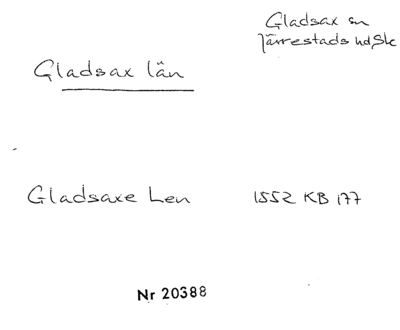 Gladsax sn
Järrestads hd Sk
Gladsax län
Gladsaxe Len 1552 KB 177
Nr 20388